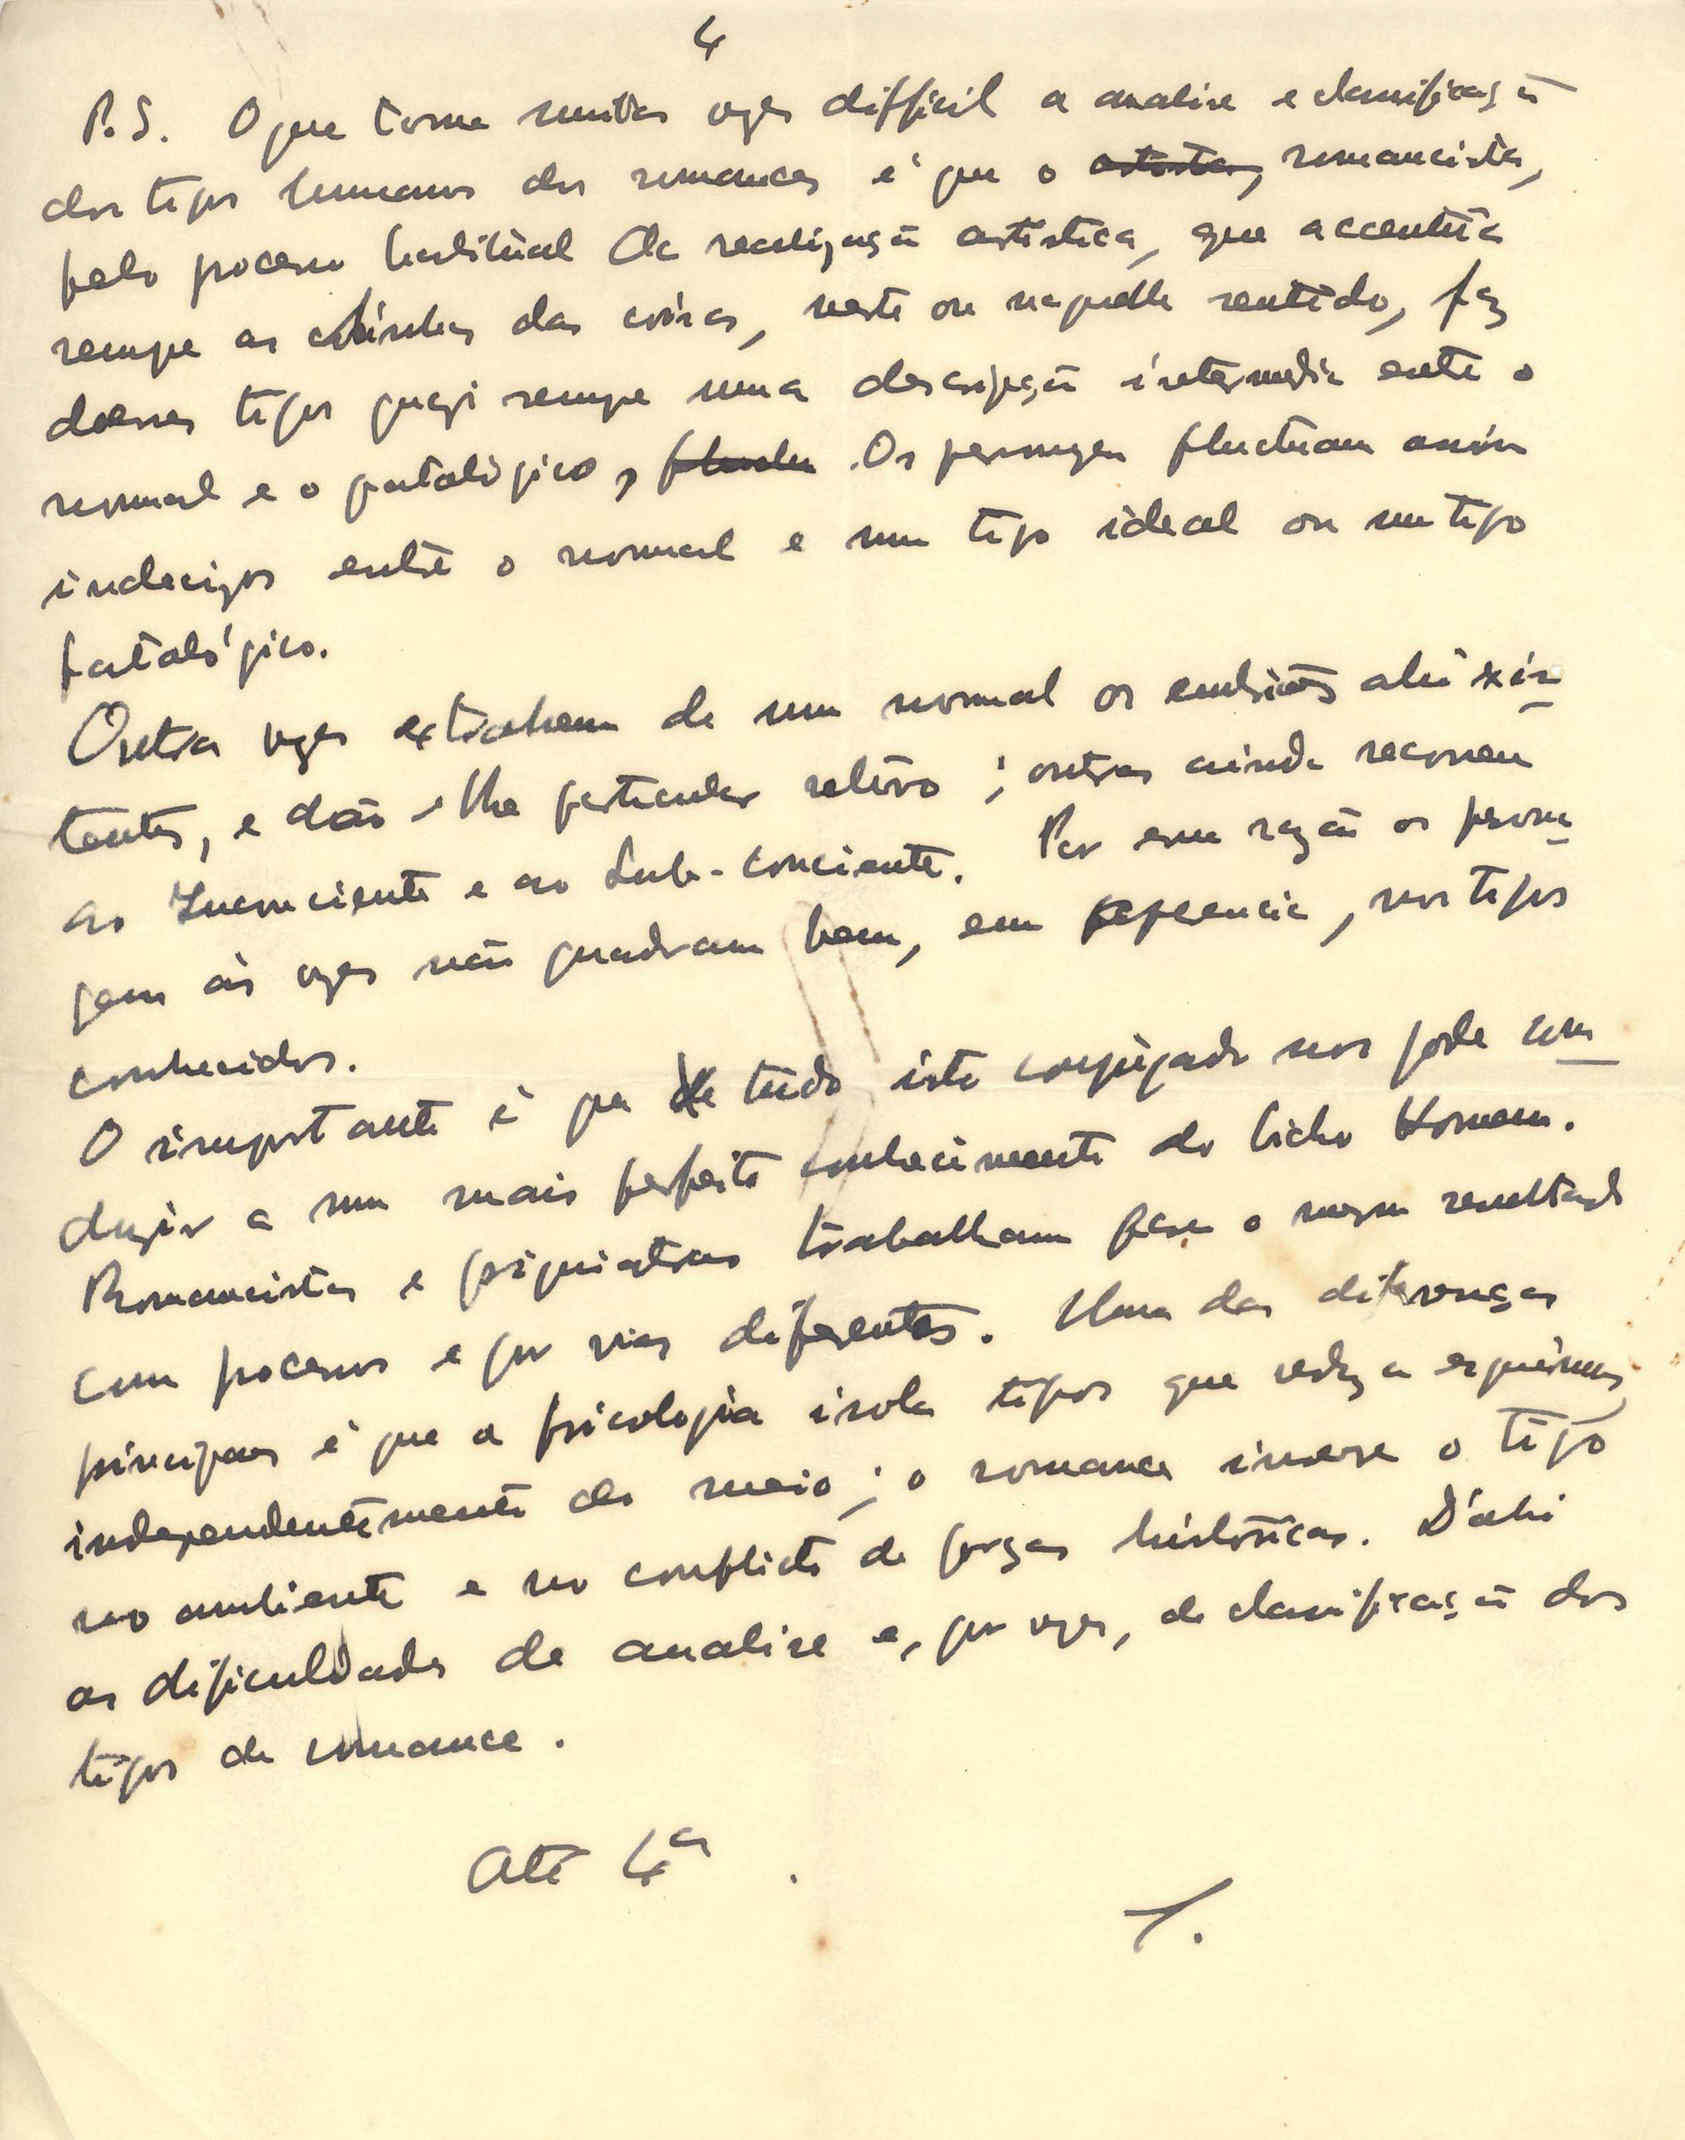 4
P.S. O que torna muitas vezes difficil a analise e classificação
dos tipos humanos dos romances é que o artista, romancista,
pelo processo habitual de realização artistica, que accentúa
sempre as linhas das coisas, neste ou naquelle sentido, faz
desses tipos quazi sempre uma descripção intermedia entre o
normal e o patalógico, . Os personagens fluctuam assim
indecizos entre o normal e um tipo ideal ou um tipo
patalógico.
Outras vezes extrahem de um normal os embriões ahi exis-
tentes, e dão-lhe particular relêvo; outras ainda recorrem
ao Inconsciente e ao Sub-conciente. Por essa razão os persona-
gens ás vezes não quadram bem, em apparencia, nos tipos
conhecidos.
O importante é que de tudo isto conjugado nos pode con-
duzir a um mais perfeito conhecimento do bicho Homem.
Romancistas e psiquiatras trabalham para o mesmo resultado
com processos e por vias diferentes. Uma das diferenças
principaes é que a psicologia isola tipos que reduz a esquemas,
independentemente do meio; o romance insere o tipo
no ambiente e no conflicto de forças históricas. D'ahi
as dificuldades de analise e, por vezes, de classificação dos
tipos de romance.
Até 4ª.
T.